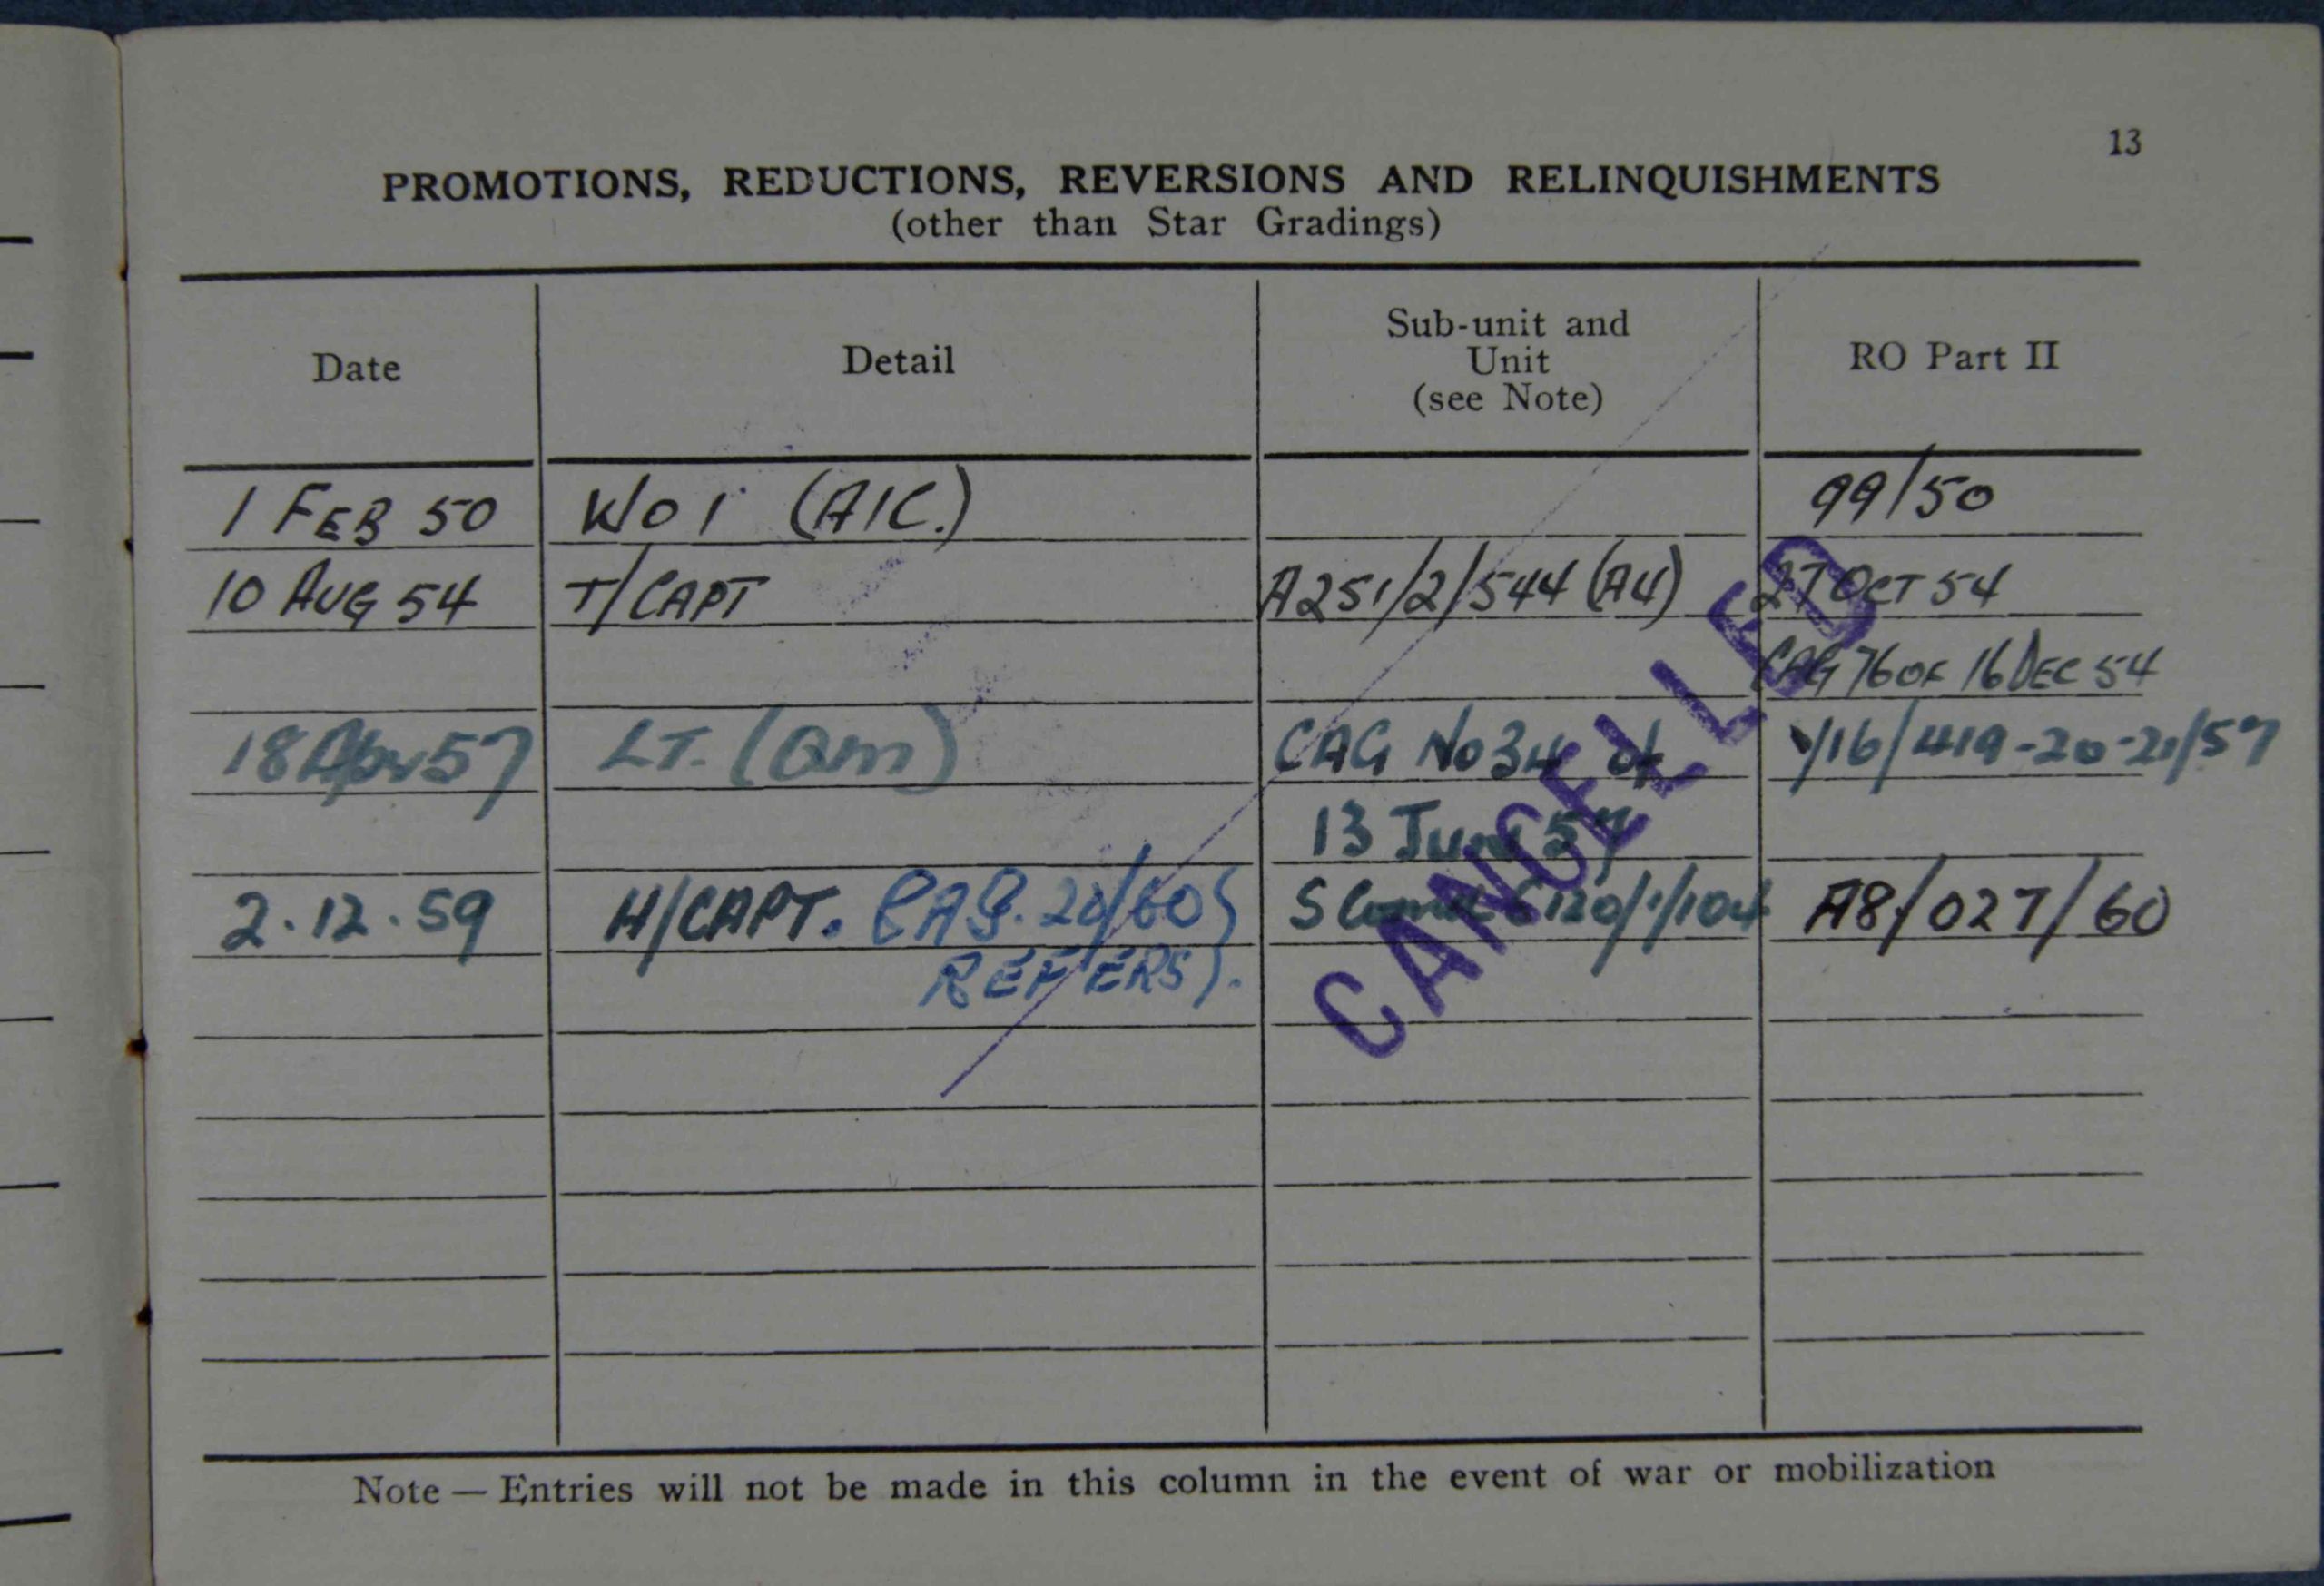 13
PROMOTIONS, REDUCTIONS, REVERSIONS AND RELINQUISHMENTS
(other than Star Gradings)
Date Detail Sub-unit and Unit (see Note) RO Part II
1 FEB 50 WO1 (AIC.) 99/50
10 AUG 54 T/CAPT A251/2/544 (A4) 27 OCT 54
CAG 76 OF 16 DEC 54
18 Apr 57 LT. (QM) CAG No 34 of Y/16/419-20-21/57
13 June 57
2.12.59 H/CAPT. CAG. 20/60 S Comd 120/1/104 A8/027/60
REFERS).
CANCELLED
Note — Entries will not be made in this column in the event of war or mobilization